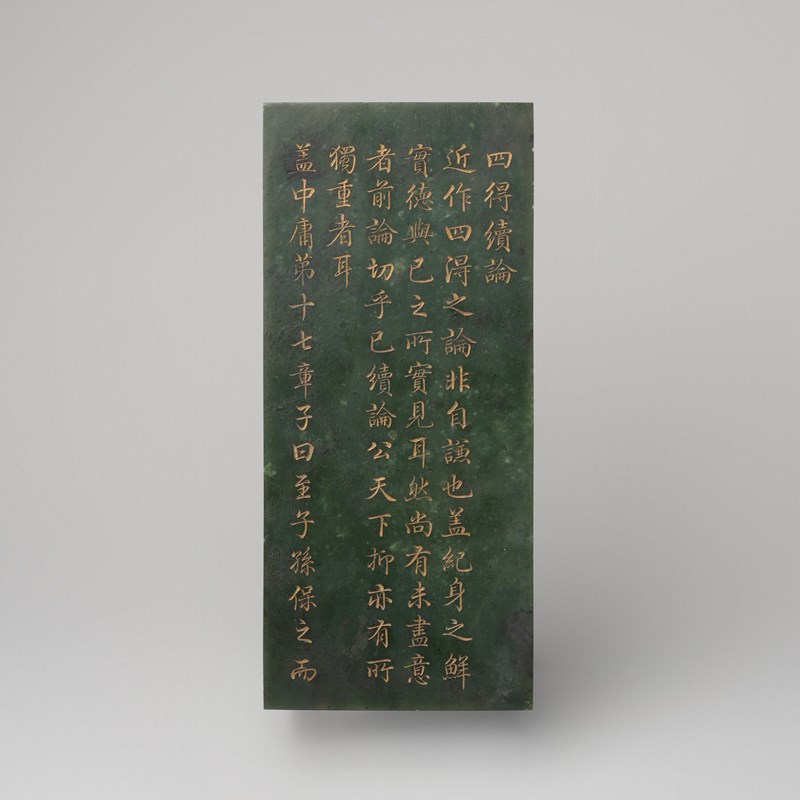 四得續論
近作四得之論非自謙也盖紀身之鮮
實德與已之所實見耳然尚有未盡意
者前論切乎已續論公天下抑亦有所
獨重者耳
盖中庸第十七章子曰至子孫保之而